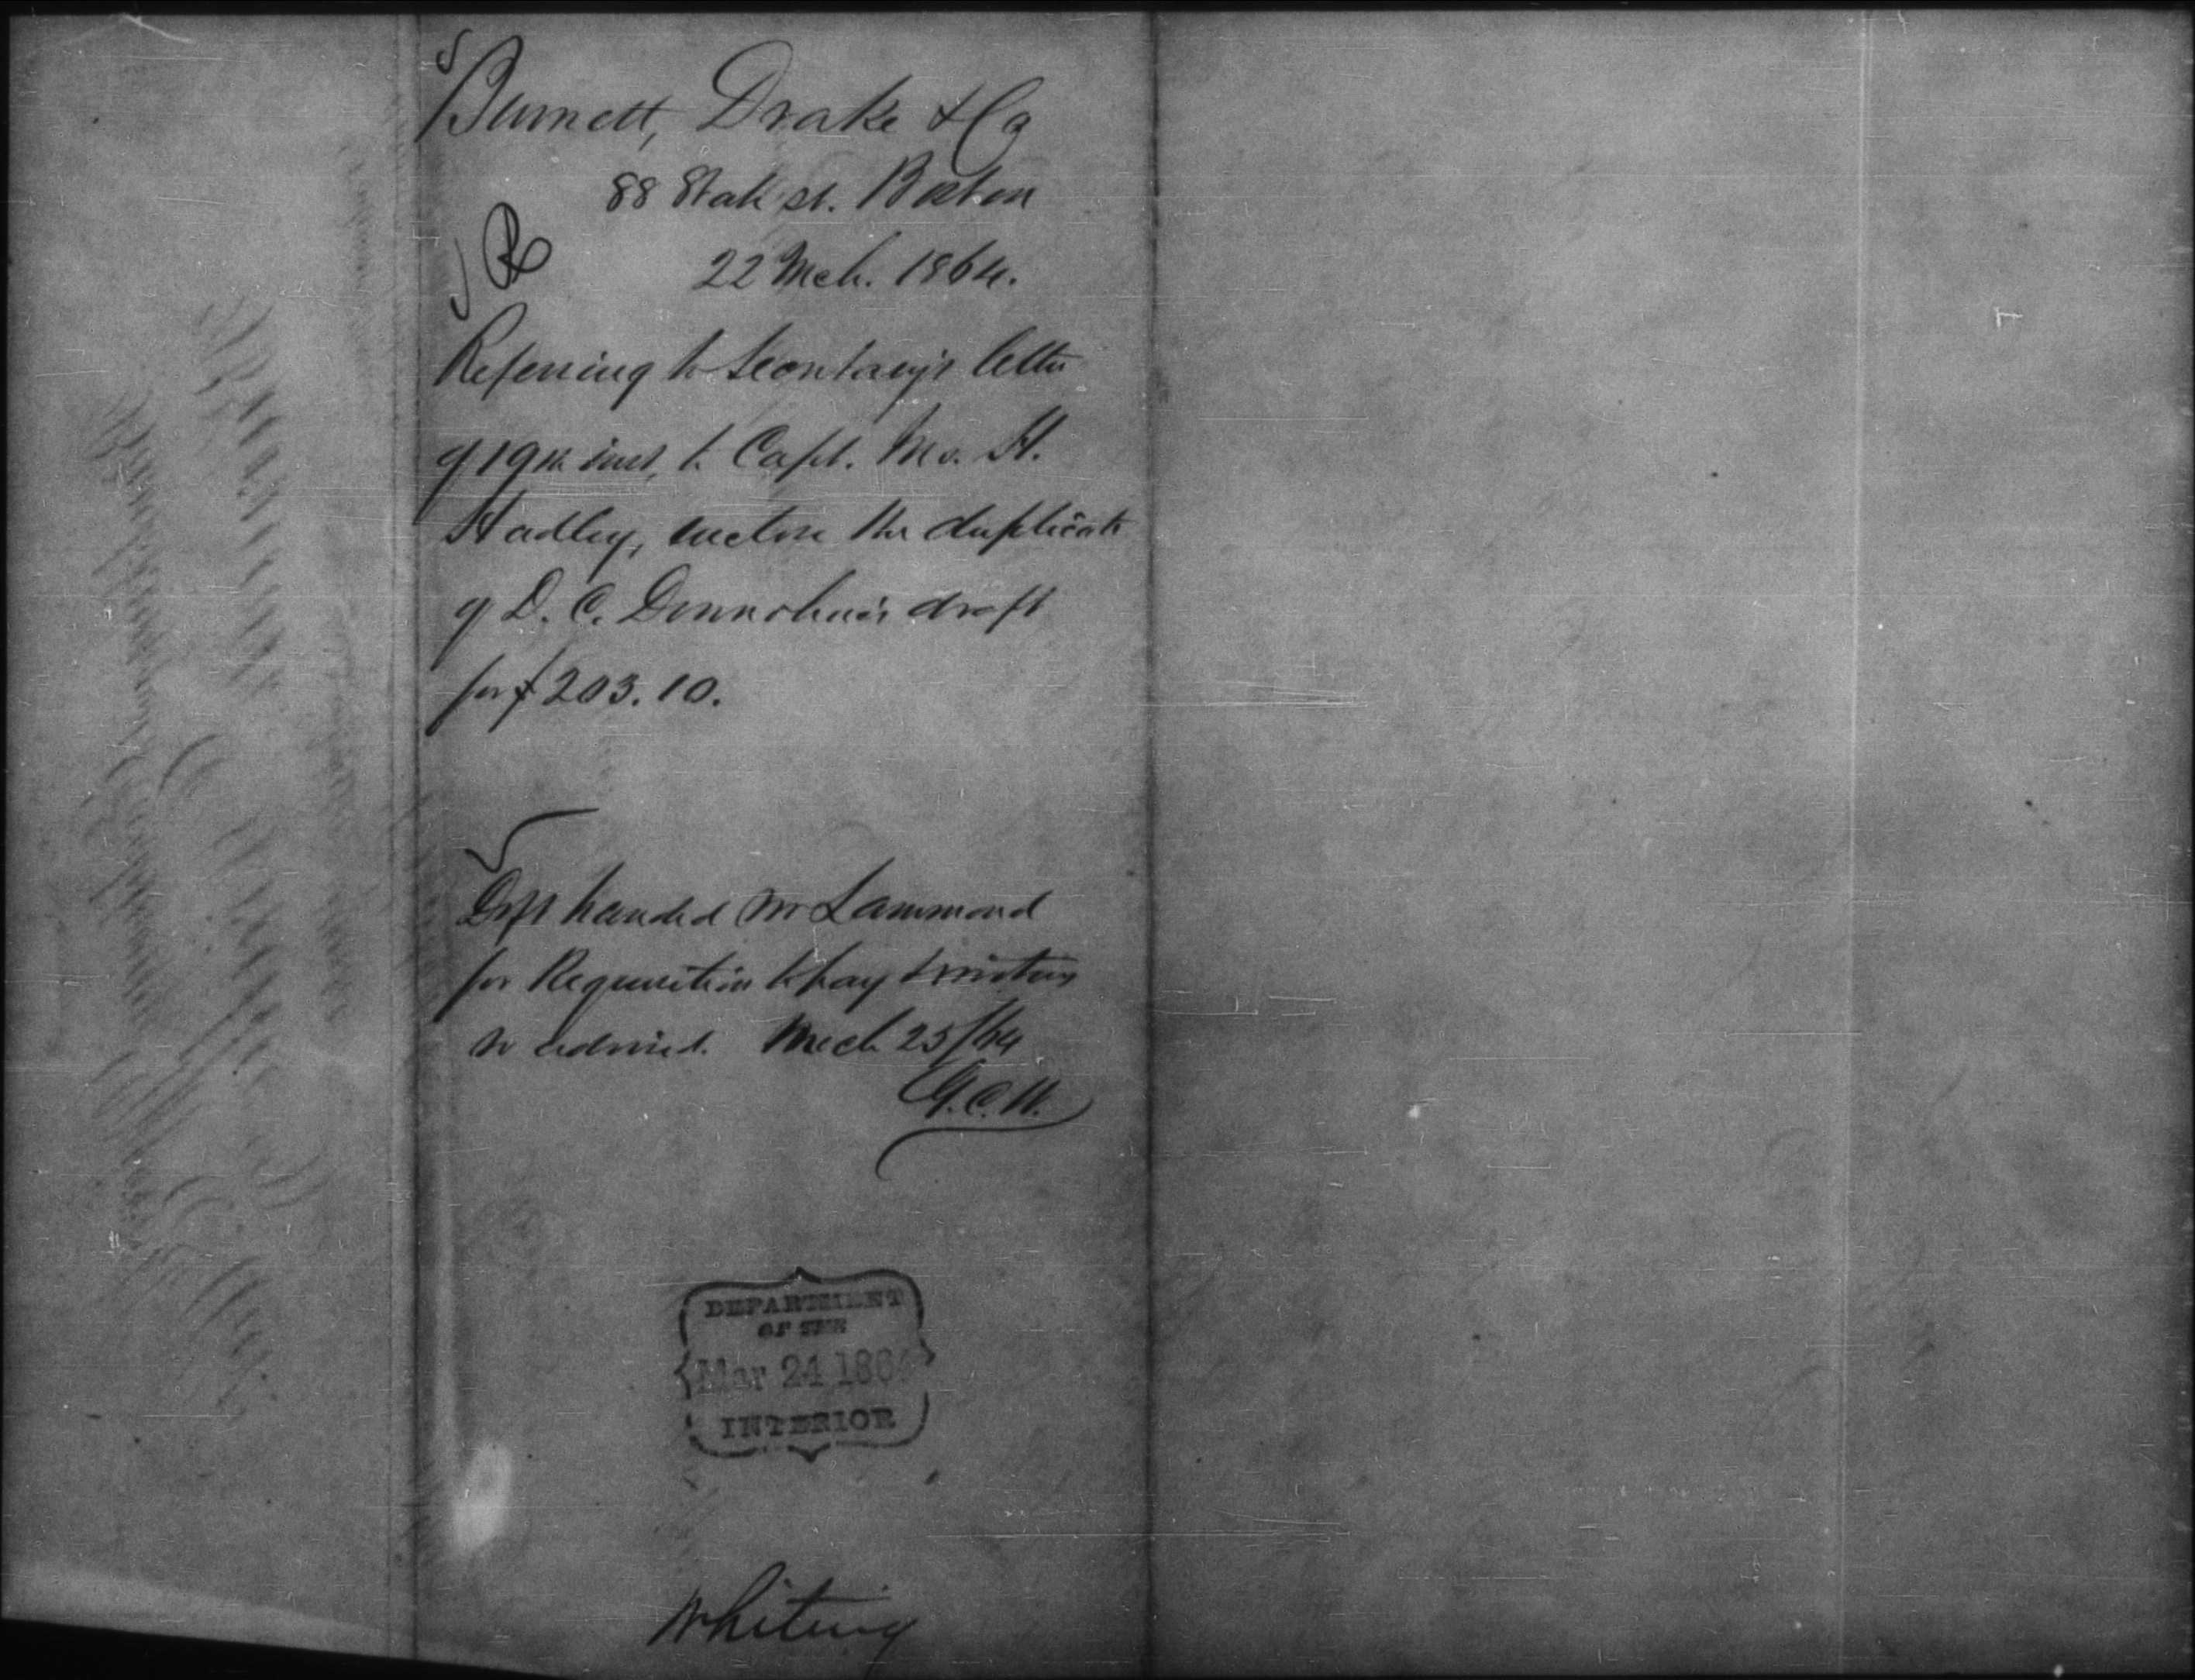 Burnett, Drake & Co
88 State st. Boston
22 Mch. 1864.
R
Referring to Secretary's letter
of 19th inst, to Capt. Mo. H.
Hadley, enclose the duplicate
of D. C. Donnohue's draft
for $203.10.
Dft handed Mr Lammond
for Requisition to pay &
so advised. Mch 25/64
G.C.W.
DEPARTMENT
OF THE
Mar 24 1864
INTERIOR
Whiting